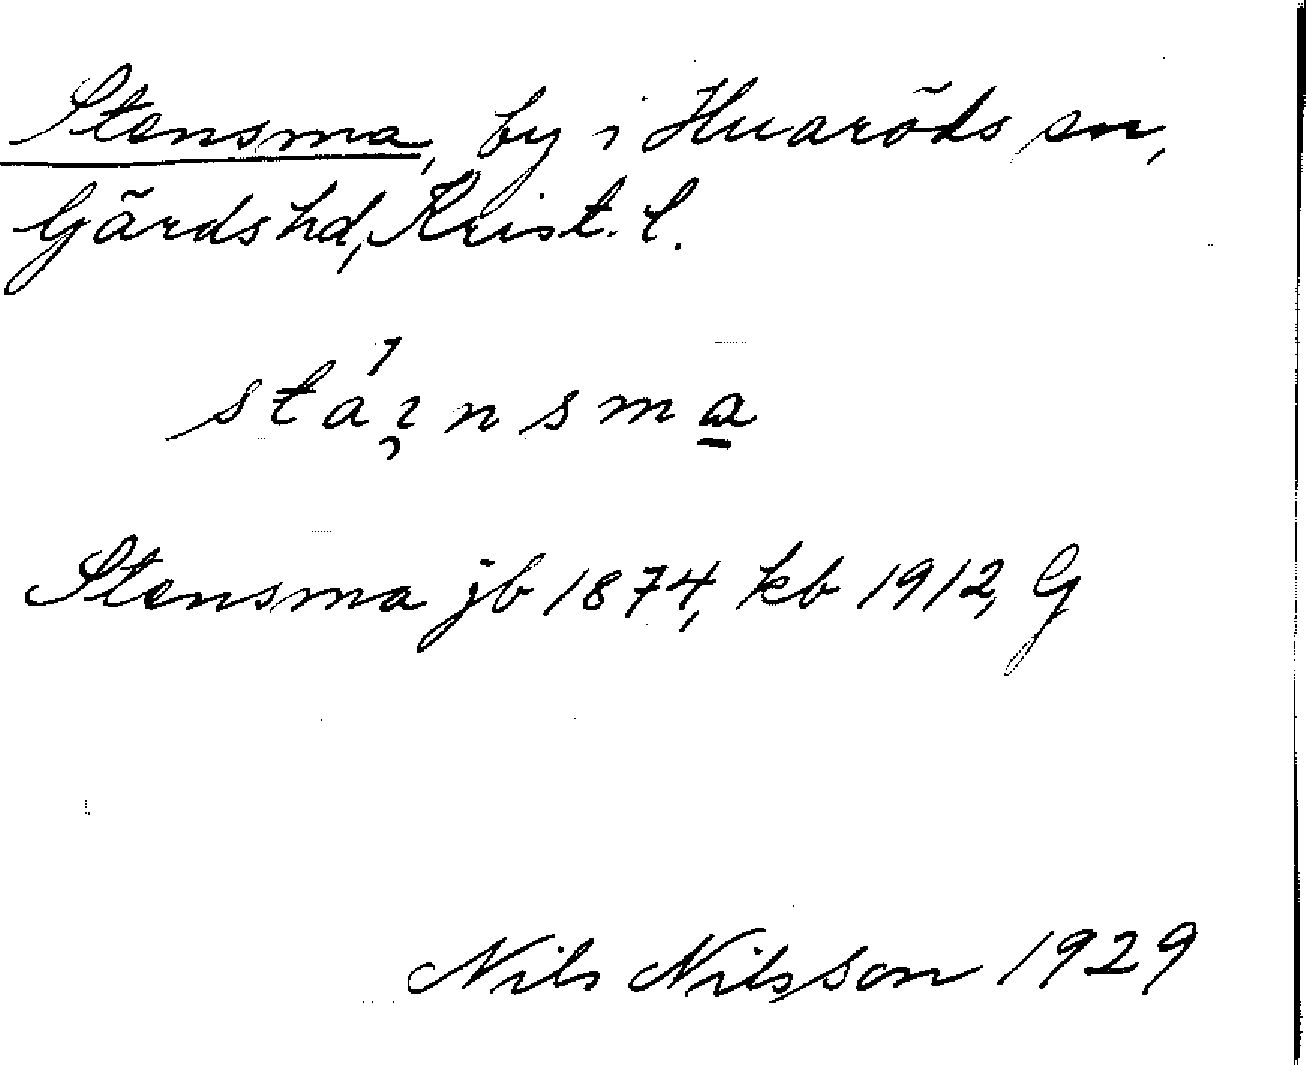 Stensma, by i Huaröds sn,
Gärds hd, Krist. l.
stáı̨nsma̱
Stensma jb 1874, kb 1912, G
Nils Nilsson 1929